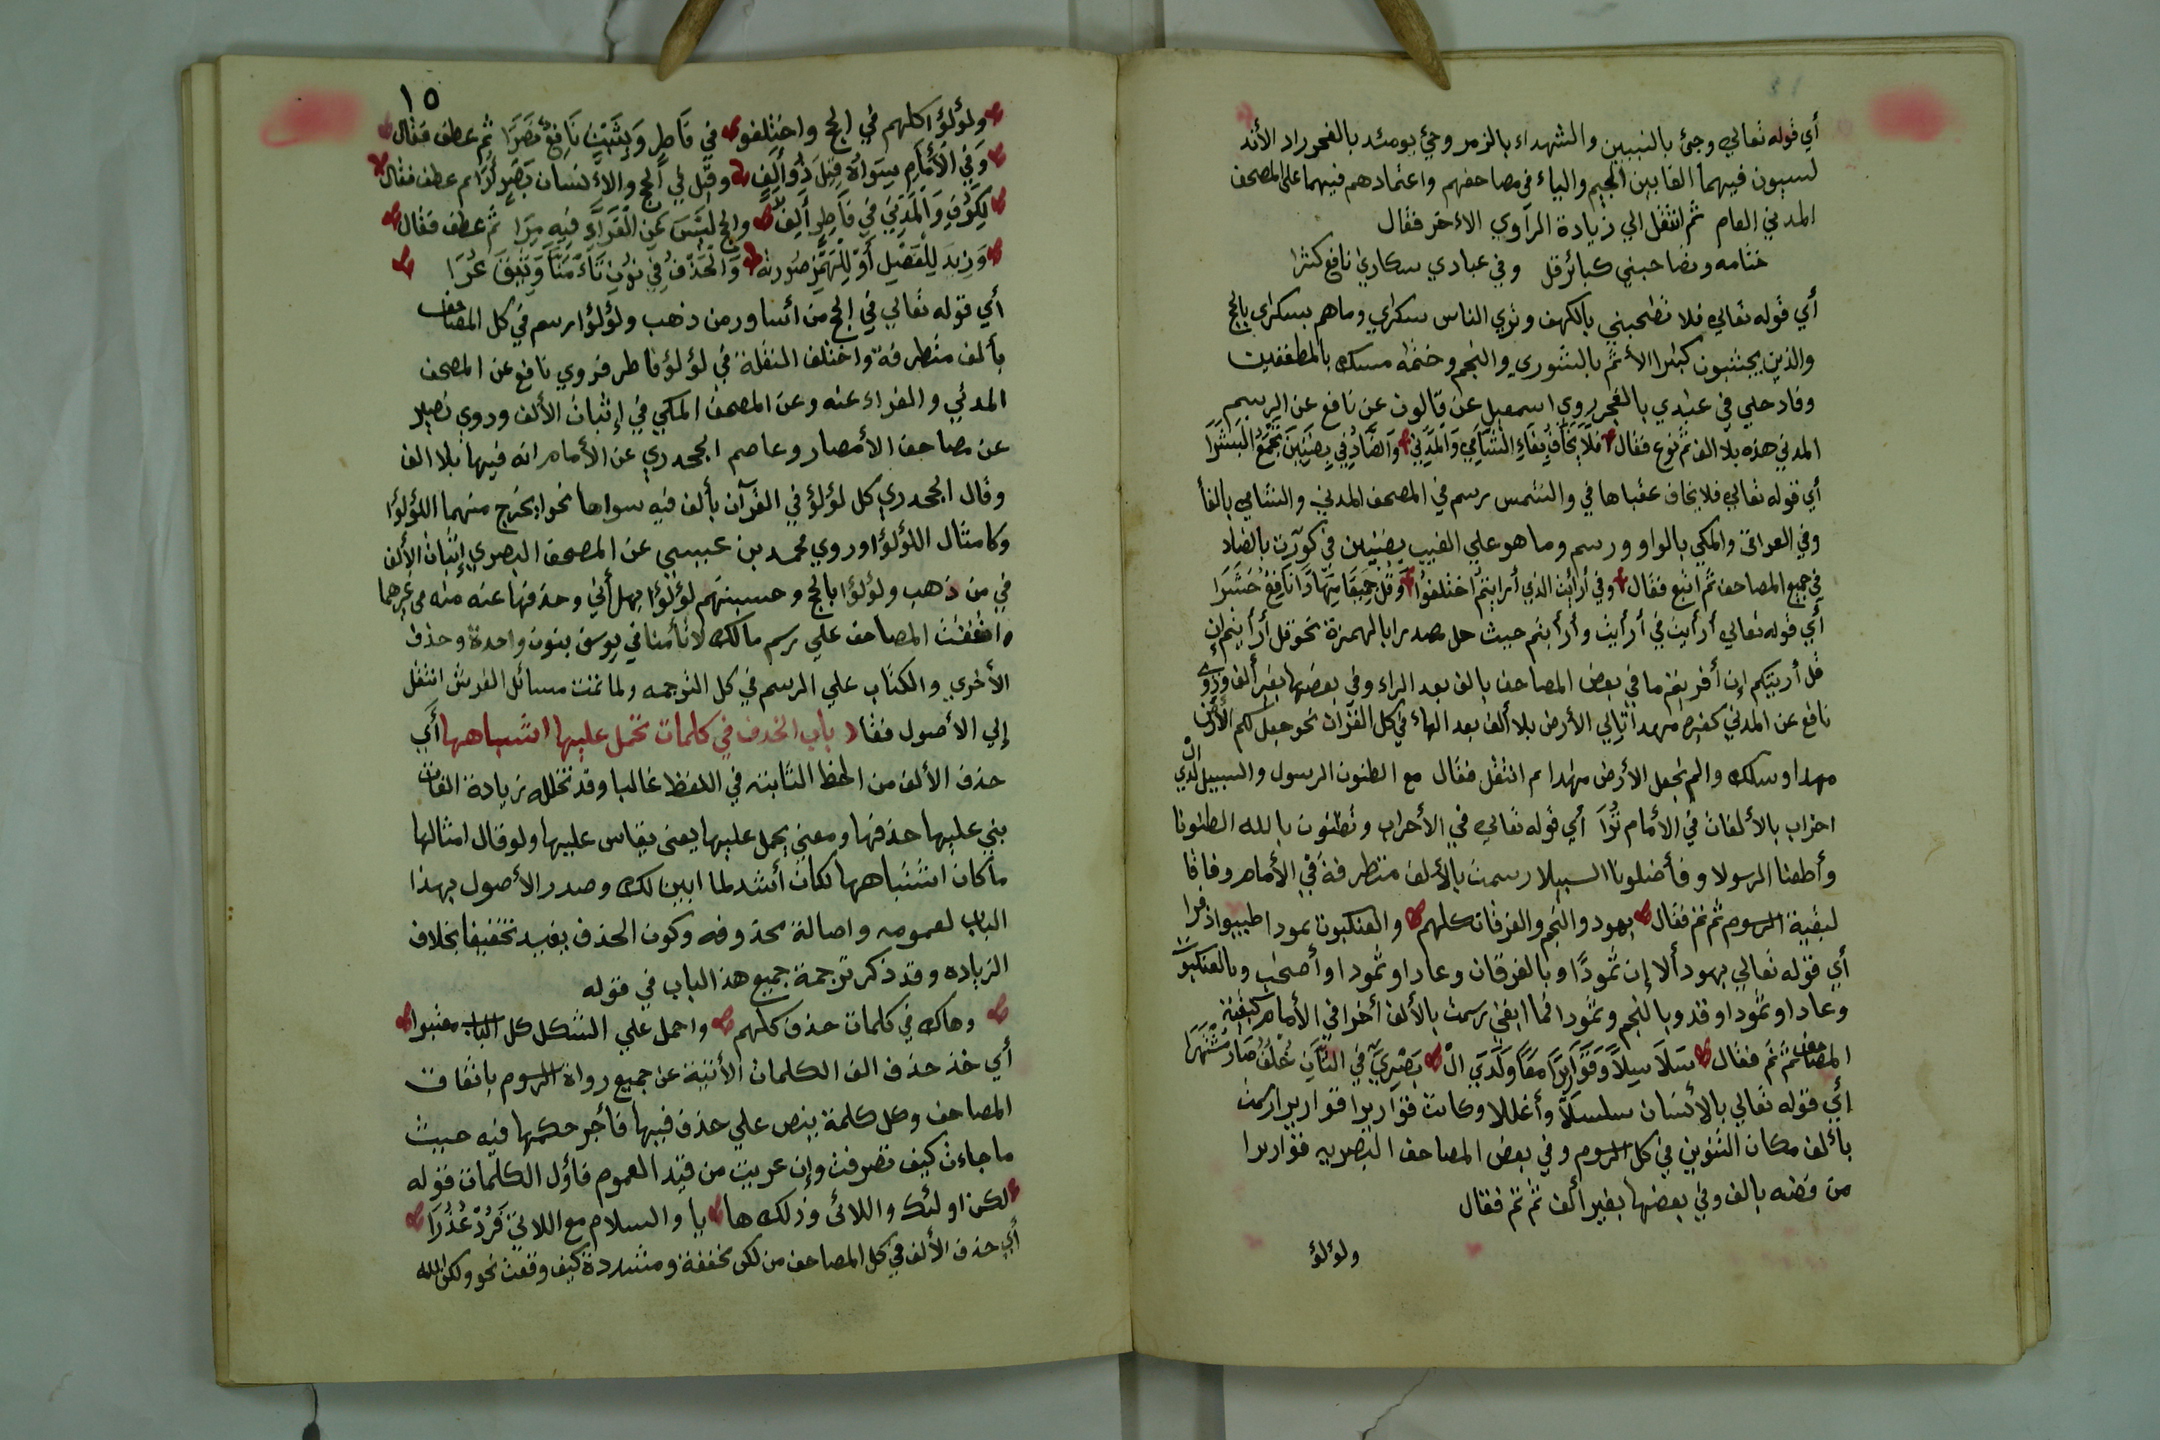 أي قوله تعالي وجئ بالنبيين والشهداء بالزمر وجئ يومئذ بالفجر راد الأند
لسيون فيهما ألفا بين الجيم والياء في مصاحفهم واعتمادهم فيهما على المصحف
المدني العام ثم انتقل الي زيادة الراوي الاخر فقال
ختامه وتصاحبني كبائر قل وفي عبادي سكاري نافع كثرا
أي قوله تعالي فلا تصٰحبني بالكهف وتري الناس سكٰري وماهم بسكٰري بالحج
والذين يجتنبون كبٰئر الأثم بالشوري والنجم وختٰمه مسك بالمطففين
وفادخلي في عبٰدي بالفجر روي اسمعيل عن قالون عن نافع عن الرسم
المدني هذه بلا الف ثم نوع فقال فلا يخاف بفاء الشامي والمدني والضاد في بضنين تجمع البشرا
أي قوله تعالي فلا يخاف عقباها في والشمس رسم في المصحف المدني والشامي بالفأ
وفي العراقي والمكي بالواو ورسم وما هو علي الغيب بضنين في كورت بالضاد
في جميع المصاحف ثم اتبع فقال وفي أرايت الذي أرايتم اختلفوا وقل جميعا مهادا نافع حشرا
أي قوله تعالي أرأيت في أرأيت وأرأيتم حيث حل مصدرا بالهمزة نحو قل أرأيتم إن
قل أريتكم إن أفريتم ما في بعض المصاحف بالف بعد الراء وفي بعضها بغير ألف وروي
نافع عن المدني كغيره مهدا تالي الأرض بلا ألف بعد الهاء في كل القرآن نحو جعل لكم الأرض
مهدا وسلك والم نجعل الأرض مهٰدا ثم انتقل فقال مع الظنون الرسول والسبيل لدي ال
احزاب بالألفات في الأمام تُرَا أي قوله تعالي في الأحزاب وتظنون بالله الظنونا
وأطعنا الرسولا وفأضلونا السبيلا رسمت بالألف متطرفة في الأمام وفاقا
لبقية الرسوم ثم تمم فقال بهود والنجم والفرقان كلهم والعنكبوت ثمود اطيبوا ذفرا
أي قوله تعالي بهود ألا إن ثمودًا وبالفرقان وعادا وثمودا وأصحٰب وبالعنكبوت
وعادا وثمودا وقد وبالنجم وثمودا فما ابقي رسمت بالألف أخرا في الأمام كبقية
المصاحف ثم تمم فقال سلا سيلا وقواريرا معا ولدي ال بصري في الثان خلف صار مشتهرا
أي قوله تعالي بالأنسان سلسلا وأغلٰلا وكانت قواريرا قواريرا رسمت
بألف مكان التنوين في كل الرسوم وفي بعض المصاحف البصريه قواريرا
من فضه بالف وفي بعضها بغير ألف ثم تمم فقال
ولؤلؤ
١٥
ولؤلؤا كلهم في الحج واختلفوا في فاطر وبثبت نافع نصرا ثم عطف فقال
وفي الأمام سواه قيل ذو ألف وقيل في الحج والانسان بصر أرا ثم عطف فقال
لكوف والمدني في فاطر ألف والحج ليس عن الفراء فيه مرا ثم عطف فقال
وزيد للفصل أو للهمز صورته والحذف في نون تأمنا وثيق عرا
أي قوله تعالي في الحج من أساور من ذهب ولؤلؤا رسم في كل المصاحف
بألف متطرفة واختلف النقلة في لؤلؤ فاطر فروي نافع عن المصحف
المدني والفراء عنه وعن المصحف المكي في إثبات الألف وروي نصير
عن مصاحف الأمصار وعاصم الجحدري عن الأمام انه فيها بلا الف
وقال الجحدري كل لؤلؤ في القرآن بألف فيه سواها نحو يخرج منهما اللؤلؤا
وكامثال اللؤلؤا وروي محمد بن عيسي عن المصحف البصري إثبات الألف
في من ذهب ولؤلؤا بالحج وحسبتهم لؤلؤا بهل أتي وحذفها عنه منه في غيرهما
واتفقت المصاحف علي رسم مالك لا تأمنا في يوسف بنون واحدة وحذف
الأخري والكتاب علي الرسم في كل الترجمه ولما تمت مسائل الفرش انتقل
إلي الأصول فقال باب الحذف في كلمات تحمل عليها اشباهها أي
حذف الألف من الخط الثابته في اللفظ غالبا وقد تخلله زيادة الفات
بني عليها حذفها ومعني يحمل عليها يعني يقاس عليها ولو قال امثالها
ما كان اشتباهها لكان أشد لما ابين لك وصدر الأصول بهذا
الباب لعمومه واصالة محذوفه وكون الحذف يفيد تخفيفا بخلاف
الزياده وقد ذكر ترجمة جميع هذا الباب في قوله
وهاك في كلمات حذف كلهم واحمل علي الشكل كل الباب معتبرا
أي خذ حذف الف الكلمات الأتية عن جميع رواة الرسوم باتفاق
المصاحف وكل كلمة ينص علي حذف فيها فأجر حكمها فيه حيث
ما جاءت كيف تصرفت وإن عريت من قيد العموم فأول الكلمات قوله
لكن اولئك واللائى وذلك ها يا والسلام مع اللاتي فرد غدرا
أي حذف الألف في كل المصاحف من لكن مخففة ومشددة كيف وقعت نحو ولكن الله